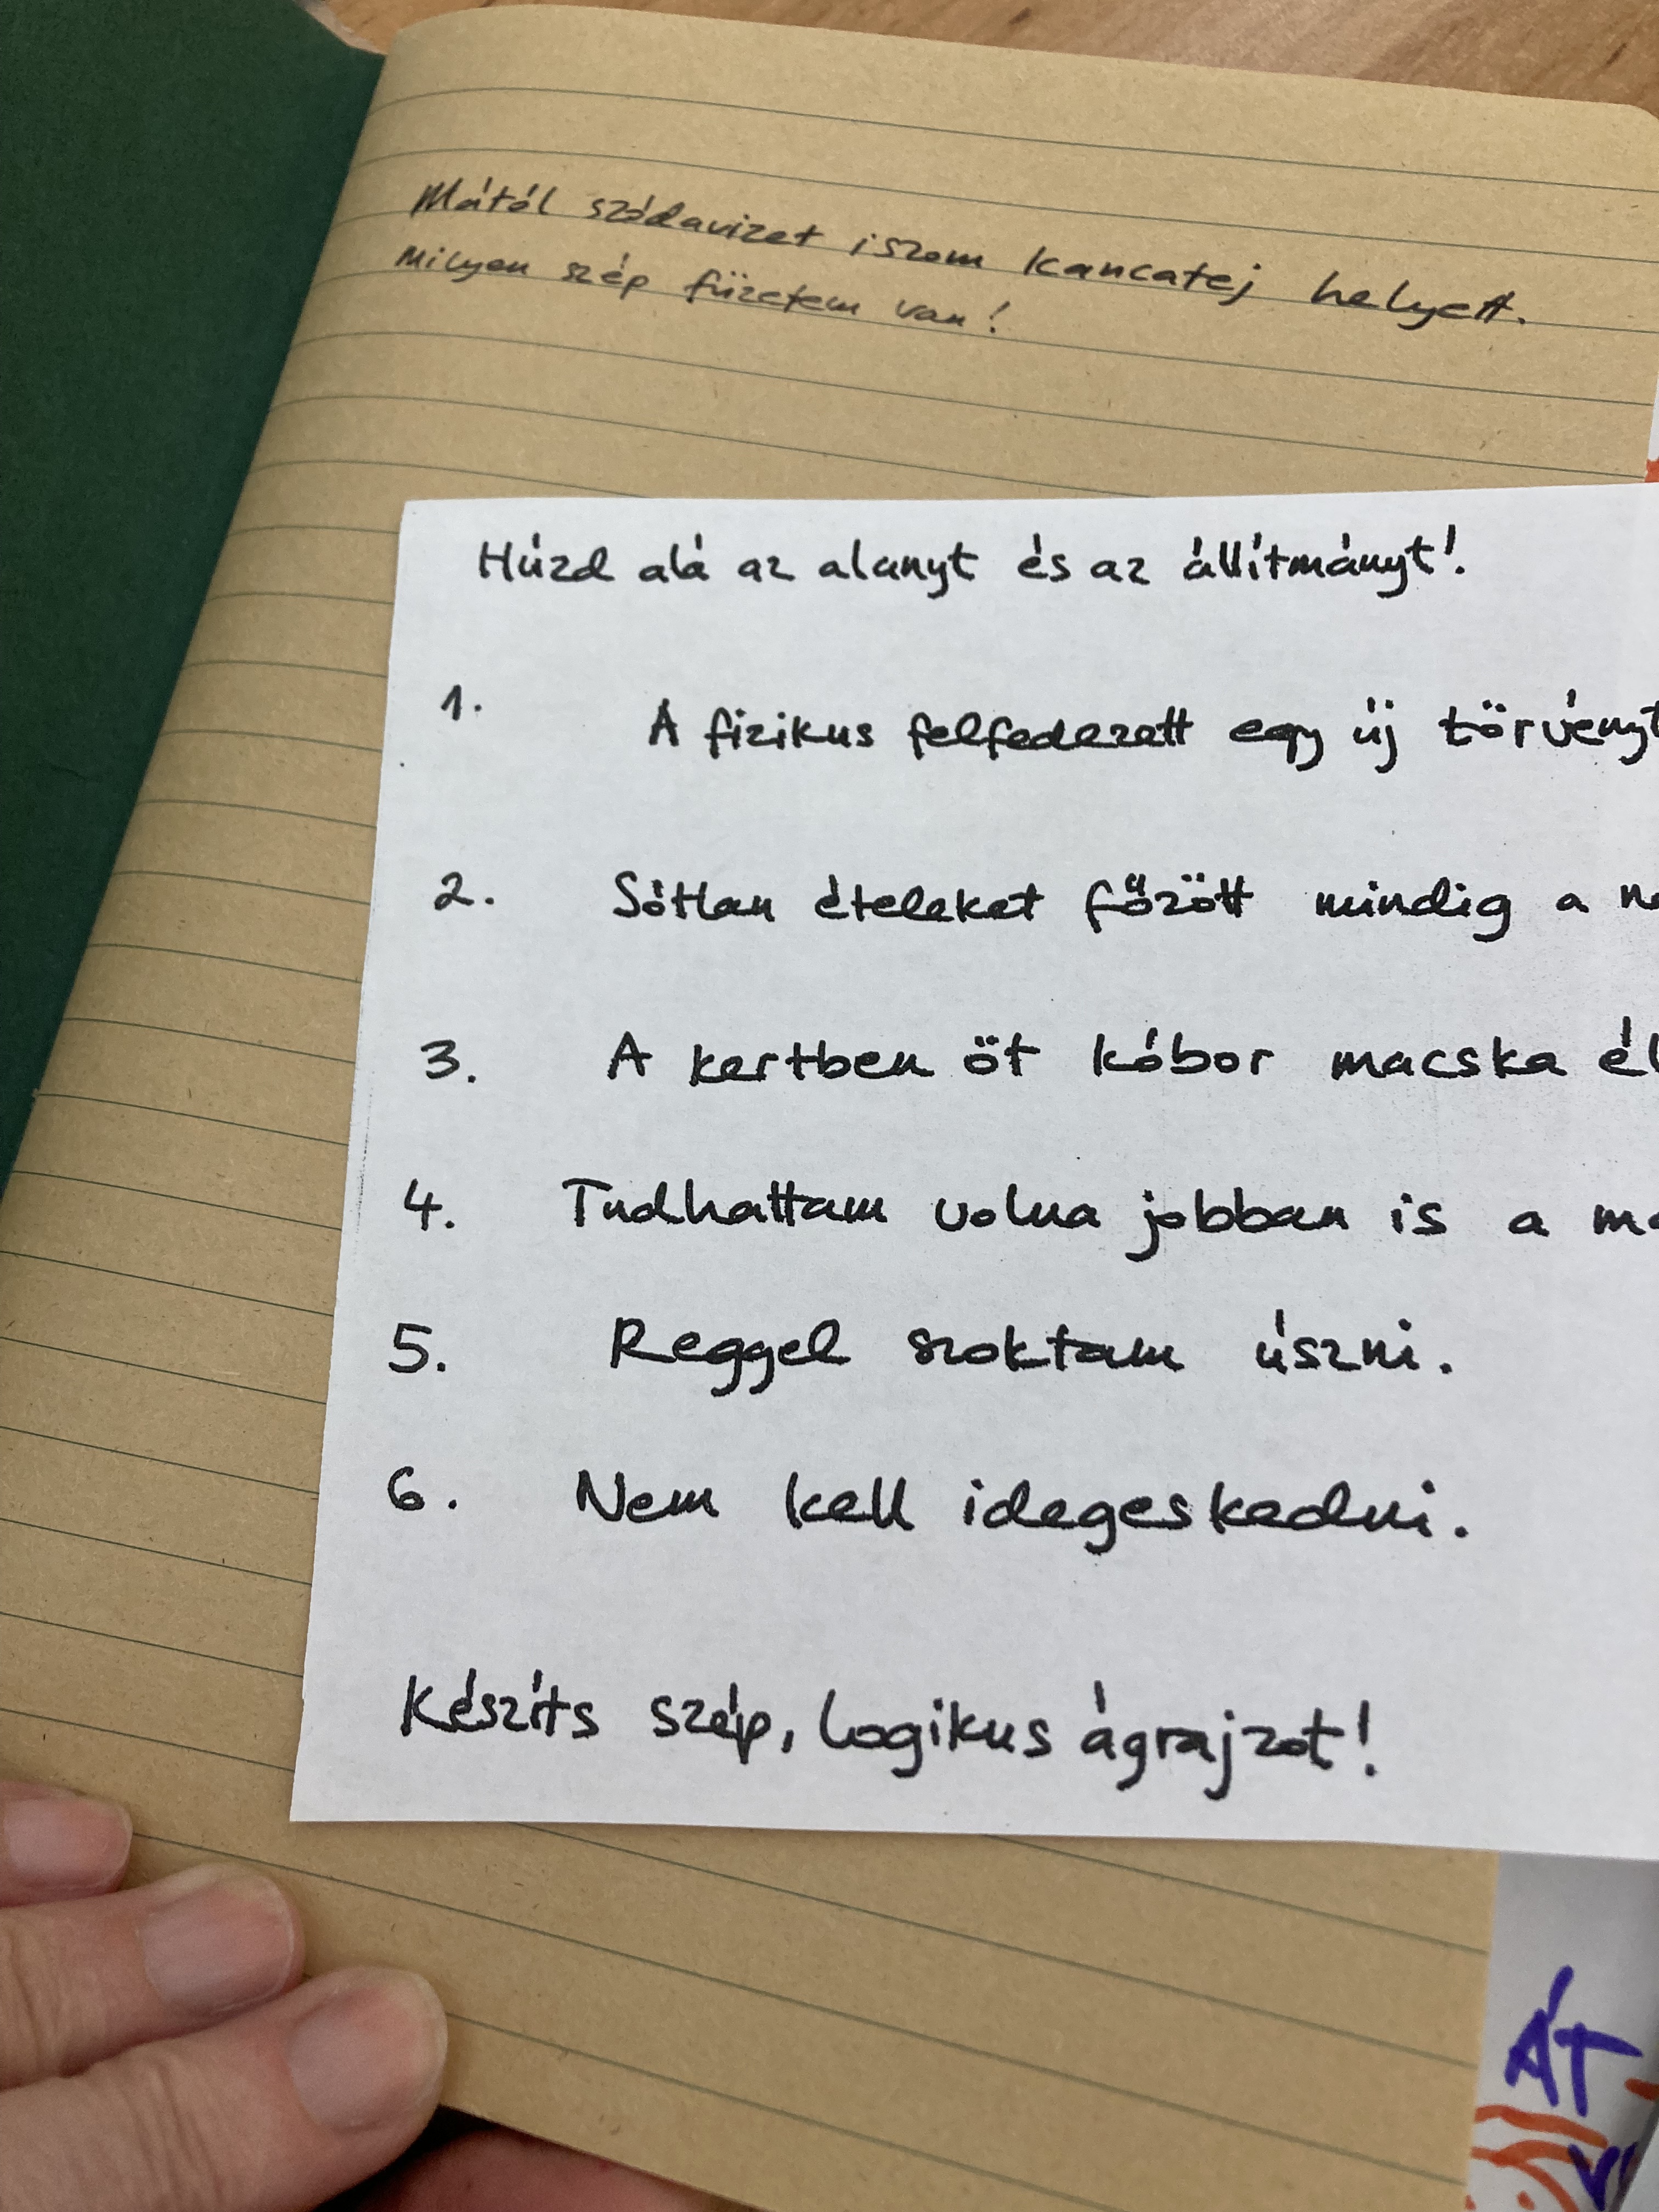 Mától szódavizet iszom kancatej helyett.
Milyen szép füzetem van!
Húzd alá az alanyt és az állítmányt!
1. A fizikus felfedezett egy új törvényt
2. Sótlan ételeket főzött mindig a
3. A kertben öt kóbor macska él
4. Tudhattam volna jobban is a
5. Reggel szoktam úszni.
6. Nem kell idegeskedni.
Készíts szép, logikus ágrajzot!
ÁT